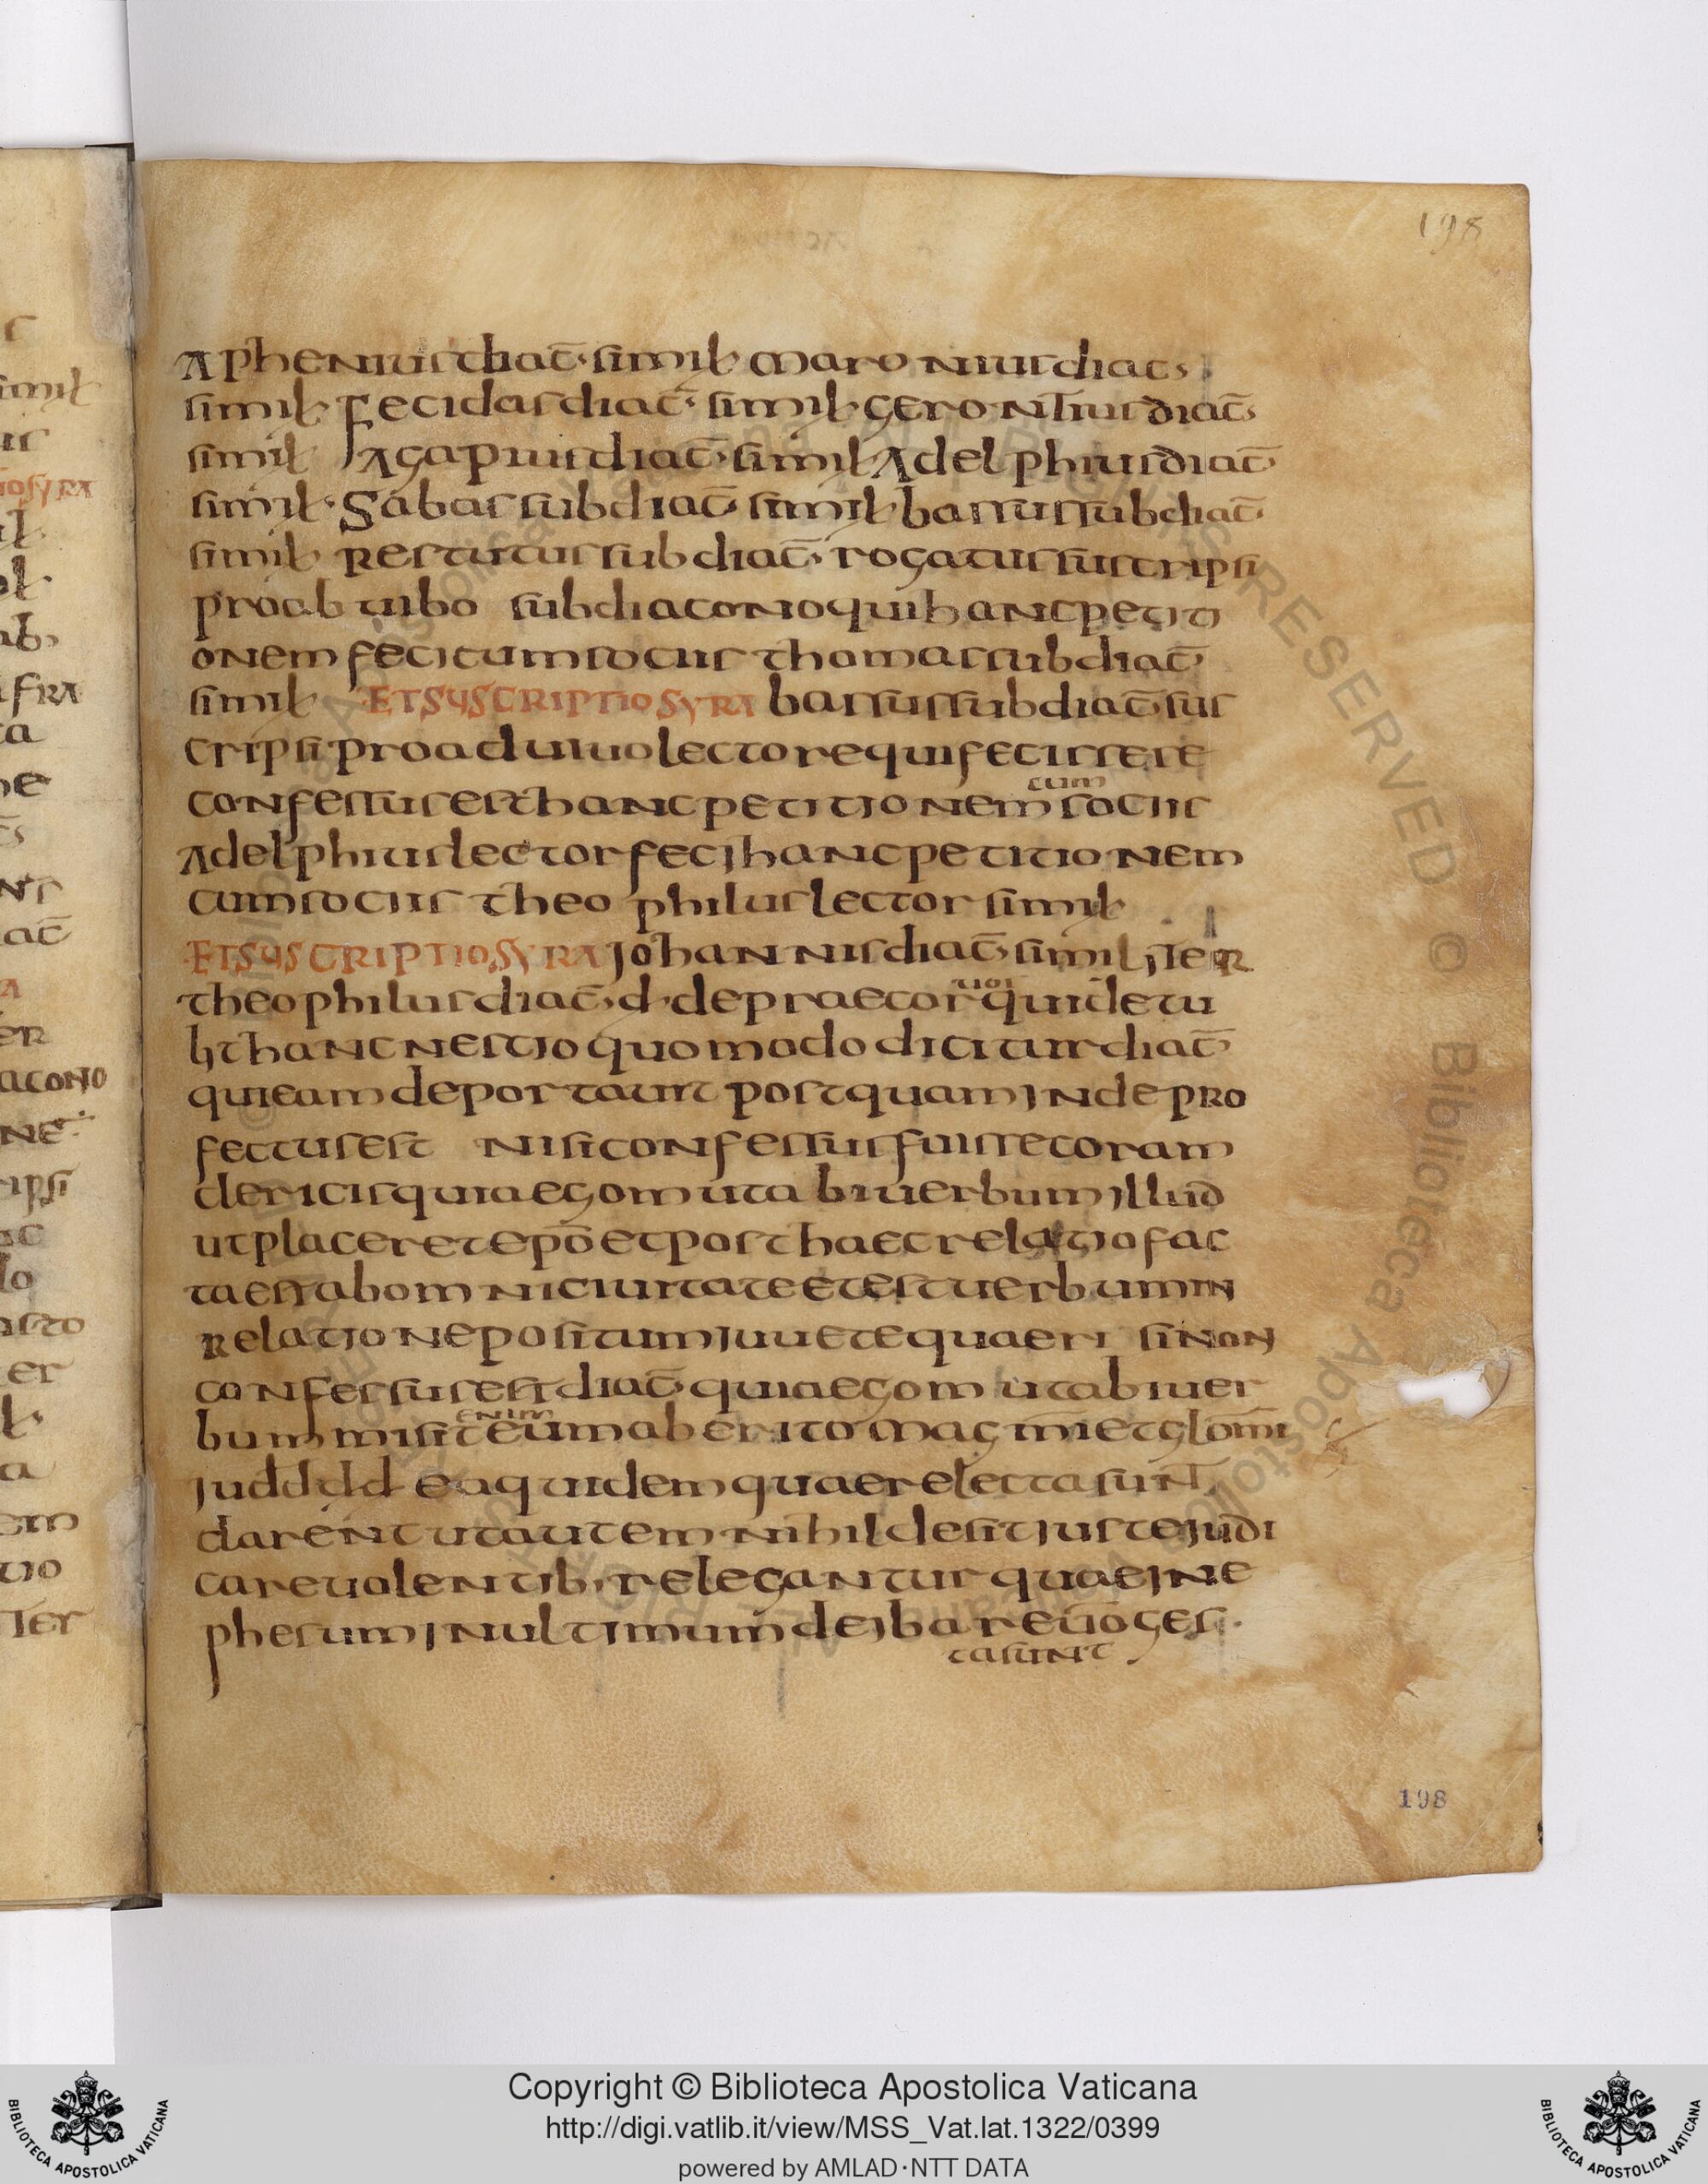 198
Aphenius diac̅ · simil · maronius diac ·
simil · fecidas diac̅ · simil · gerontius diac̅ ·
simil · Agapius diac̅ · simil · Adelphius diac̅
simil · Sabas subdiac̅ · simil · bassus subdiac̅ ·
simil · Restutus subdiac̅ · rogatus suscripsi
pro ab uibo subdiacono qui hanc petiti
onem fecit cum sociis thomas subdiac̅
simil · ET SUSCRIPTIO SYRA bassus subdiac̅ sus
cripsi pro ad uiuo lectore qui fecisse se
confessus est hanc petitionem cum sociis
Adelphius lector feci hanc petitionem
cum sociis theophilus lector simil ·
ET SUSCRIPTIO SYRA Johannis diac̅ · similiter
theophilus diac̅ · d · de praecor quidetu
lit hanc nescio quomodo dicitur diac̅
qui eam deportauit postquam inde pro
fectus est nisi confessus fuisset coram
clericis quia ego mutabi uerbum illud
ut placeret epō et post haec relatio fac
ta est ab omni ciuitate et est uerbum in
relatione positum iuuete quaeri si non
confessus est diac̅ · quia ego mutabi uer
bum misit enim eum ab erito mag m̅ et glom̅
Judd dd ea quidem quae relecta sunt
clarent ut autem nihil desit iuste iudi
care uolentib · relegantur quae in e
phesum in ultimum de iba reuō ges
ta sunt
198
Copyright © Biblioteca Apostolica Vaticana
http://digi.vatlib.it/view/MSS_Vat.lat.1322/0399
powered by AMLAD·NTT DATA